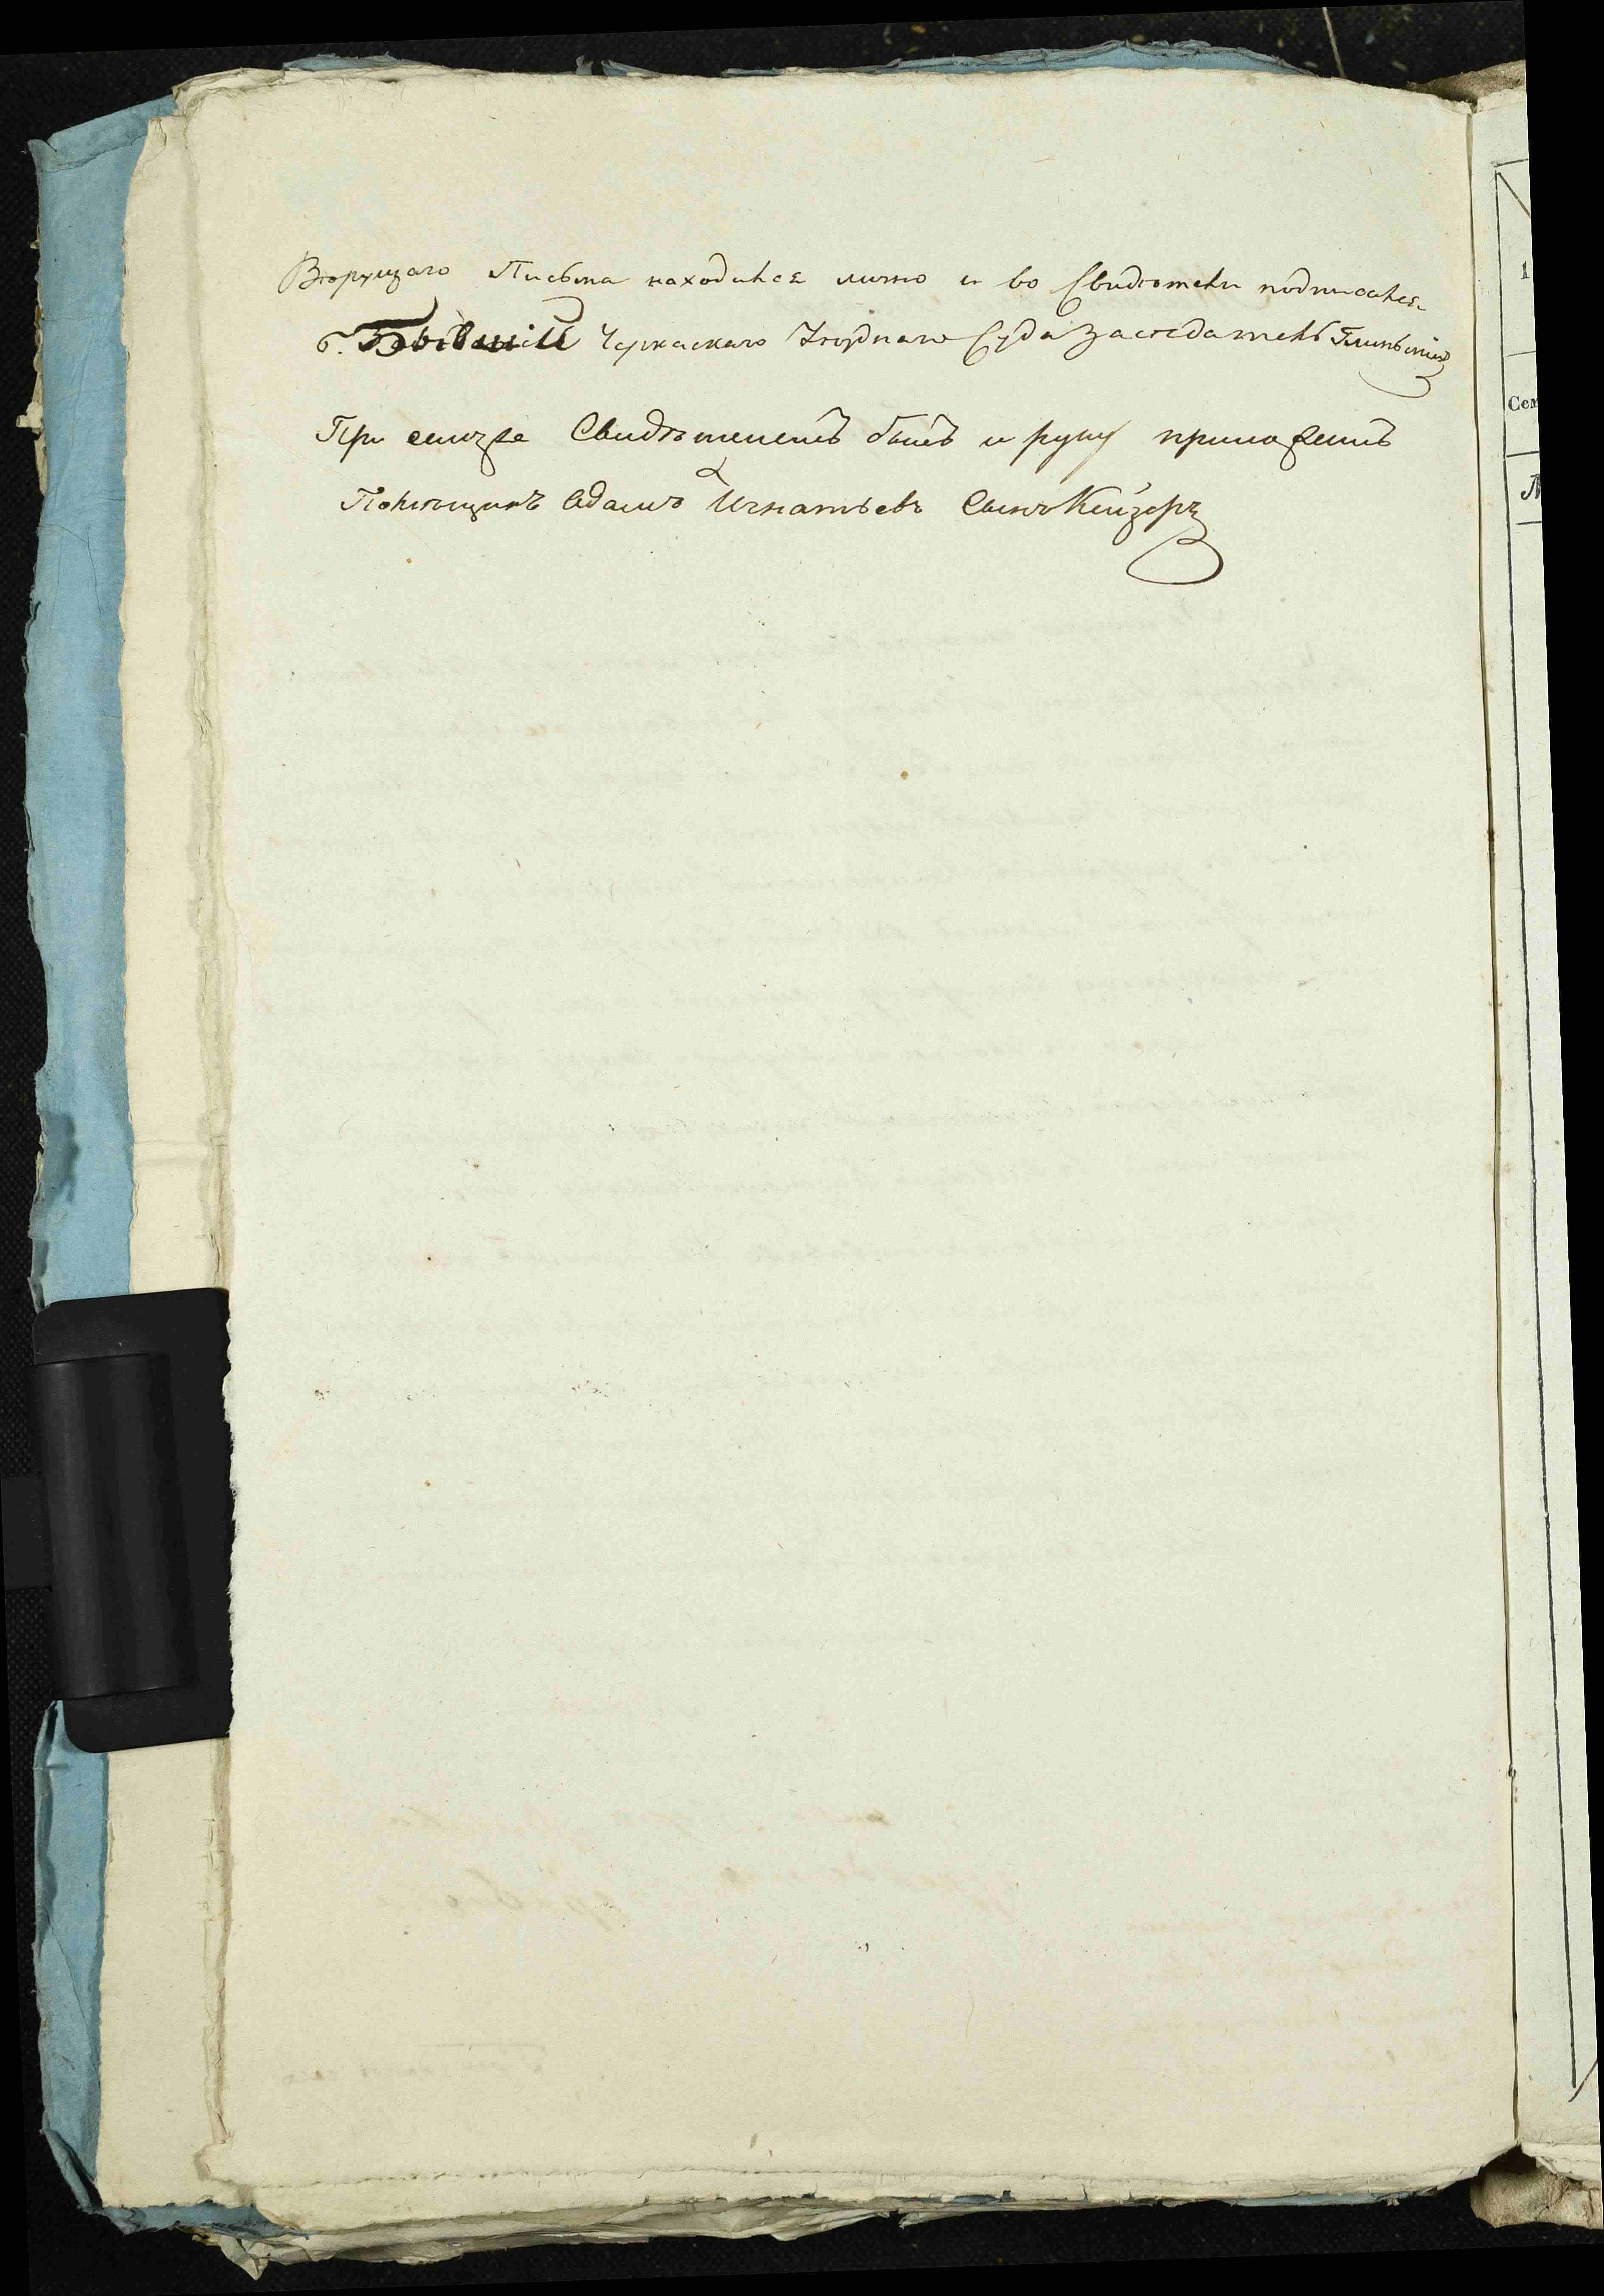 Вѣрующаго Письма находился лично и во Свидѣтели подписался
б. Бывшій Черкаскаго Уѣзднаго Суда Засѣдатель
При семъ же Свидѣтелемъ былъ и руку приложилъ
Помѣщикъ Адамъ Игнатьевъ Сынъ Кейзеръ
1
Сем